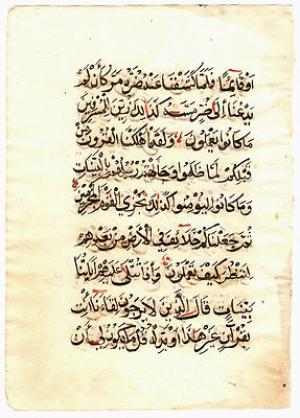 او قائما فلما كشفنا عنه ضره مر كان لم
يدعنا الى ضر مسه كذلك زين للمسرفين
ما كانوا يعملون ولقد اهلكنا القرون من
قبلكم لما ظلموا وجاءتهم رسلهم بالبينات
وما كانوا ليؤمنوا كذلك نجزي القوم المجرمين
ثم جعلناكم خلائف في الارض من بعدهم
لننظر كيف تعملون واذا تتلى عليهم اياتنا
بينات قال الذين لا يرجون لقاءنا ائت
بقران غير هذا او بدله قل ما يكون لي ان